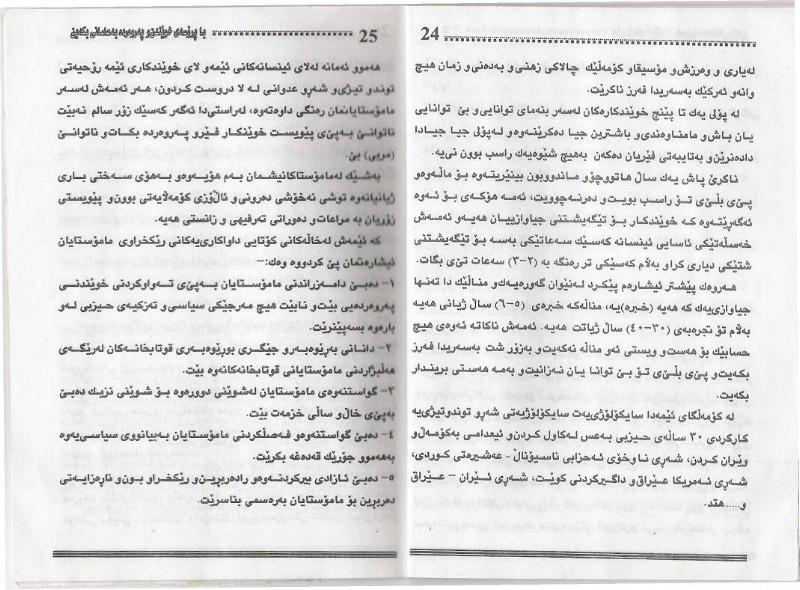 24
لەیاری و وەرزش و مۆسیقاو کۆمەڵێك چالاکی زهنی و بەدەنی و زمان هیچ
وانەو ئەرکێك بەسەریدا فەرز ناکرێت.
لە پۆلی یەك تا پێنج خوێندکارەکان لەسەر بنەمای توانایی و بێ توانایی
یان باش و مامناوەندی و باشترین جیا دەکرێنەوەو لەپۆل جیا جیادا
دادەنرێن و بەتایبەتی فێریان دەکەن بەهیچ شێوەیەك راسب بوون نی یە.
ناکرێ پاش یەك ساڵ هاتووچۆو ماندووبون بینێریتەوە بۆ ماڵەوەو
پـێ ی بڵـێ ی تـۆ راسـب بویـت و دەرنـەچوویت، ئـەمە هۆکـەی بـۆ ئـەوە
ئەگەڕێتەوە کە خوێندکار بۆ تێگەیشتنی جیاوازییان هەیەو ئەمەش
خەسڵەتێکی ئاسایی ئینسانە کەسێك سەعاتێکی بەسە بۆ تێگەیشتنی
شتێکی دیاری کراو بەڵام کەسێکی تر رەنگە بە (٢-٣) سەعات تێ ی بگات.
هـەروەك پێشتر ئیشارەم پێکـرد لـەنێوان گەورەیـەك و مناڵێك دا تـەنها
جیاوازی یەك کە هەیە (خیرە)یە، مناڵەکە خیرەی (٥-٦) ساڵ ژیانی هەیە
بەڵام تۆ تجرەبەی (٣٠-٤٠) ساڵ ژیانت هەیە. ئەمەش ناکاتە ئەوەی هیچ
حسابێك بۆ هەست و ویستی ئەو مناڵە نەکەیت و بەزۆر شت بەسەریدا فەرز
بکەیت و پێ ی بڵێ ی تۆ بێ توانا یان نەزانیت و بەمە هەستی بریندار
بکەیت.
لە کۆمەڵگای ئێمەدا سایکۆلۆژی یەت سایکۆلۆژیەتی شەڕو توندوتیژی یە
کارکردی ٣٠ ساڵەی حیزبی بەعس لەکاول کردن و ئیعدامی بەکۆمەڵ و
وێران کردن، شەڕی ناوخۆی ئەحزابی ناسیۆناڵ - عەشیرەتی کوردی،
شەڕی ئەمریکا عێراق و داگیرکردنی کوێت، شەڕی ئێران – عێراق
و.....هتد.
با پرۆسەی خوێندن و پەروەردە بەعەلمانی بکەین
25
هەموو ئەمانە لەلای ئینسانەکانی ئێمەو لای خوێندکاری ئێمە رۆحیەتی
توندو تیژی و شەڕو عدوانی لـە لا دروسـت کـردون، هـەر ئەمـەش لەسـەر
مامۆستایانمان رەنگی داوەتەوە، لەراستی دا ئەگەر کەسێك زۆر سالم نەبێت
ناتوانێ بـەپێ ی پێویست خوێندکـار فێـرو پـەروەردە بکـات و ناتوانـێ
(مربی) بێ.
بەشێك لەمامۆستاکانیشمان بـەم هۆیـەوەو بـەهۆی سـەختی بـاری
ژیانیانەوە توشی نەخۆشی دەرونی و ئاڵۆزی کۆمەڵایەتی بوون و پێویستی
زۆریان بە مراعات و دەوراتی تەرفیهی و زانستی هەیە.
کە ئێمەش لەخاڵەکانی کۆتایی داواکاری یەکانی رێکخراوی مامۆستایان
ئیشارەتمان پێ کردووە وەك:-
١- دەبـێ دامـەزراندنی مامۆسـتایان بـەپێ ی تـەواوکردنی خوێنـدنی
پەروەردەیی بێت و نابێت هیچ مەرجێکی سیاسی و تەزکیەی حـیزبی لەو
بارەوە بسەپێنرێت.
٢- دانـانی بەڕێوەبـەرو جێگـری بوڕێوەبـەری قوتابخانـەکان لەرێگـەی
هەڵبژاردنی مامۆستایانی قوتابخانەکانەوە بێت.
٣- گواستنەوەی مامۆستایان لەشوێنی دوورەوە بۆ شوێنی نزیـك دەبێ
بەپێ ی خاڵ و ساڵی خزمەت بێت.
٤- دەبێ گواستنەوەو فـەصڵکردنی مامۆستایان بـەبیانووی سیاسی یەوە
بەهەموو جۆرێك قەدەغە بکرێت.
٥- دەبـێ ئازادی بیرکردنەوەو رادەربڕین و رێکخراو بـون و ناڕەزایـەتی
دەربڕین بۆ مامۆستایان بەرەسمی بناسرێت.